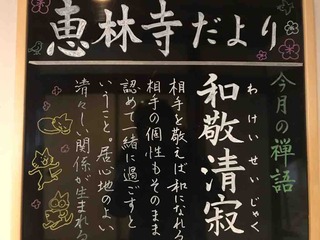 恵林寺だより
今月の禅語
わけいせいじゃく
和敬清寂
相手を敬えば和になれる
相手の個性もそのまま
認めて一緒に過ごすと
いうこと。居心地のよい
清々しい関係が生まれる